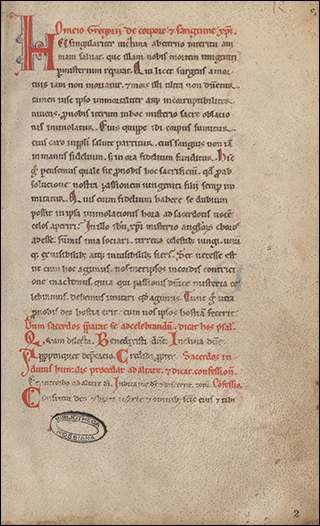 Homicio Gregorii de corpore & sanguine xp̄i.
Ec singulariter uictima ab eterno interitu ani
mam saluat. que illam nobis mortem unigeniti
p misterium reparat. Qui licet surgens a mor
tuis iam non moritur. & mors illi ultra non dn̄abit̄.
tamen in se ipso inmortaliter atq; incorruptibiliter
uiuens. ꝓ nobis iterum in hoc misterio sacre oblacio
nis immolatur. Eius quippe ibi corpus sumitur.
eius caro in ppli salute partitur. eius sanguis non iā
in manus fidelium. s; in ora fidelium funditur. Hinc
g̊ pensemus quale sit ꝓ nobis hoc sacrificiū. qd̄ ꝓ ab
solucione nostra passionem unigeniti filii semp imi
tatur. Quis enim fidelium habere dubium
possit in ipsa immolacionis hora ad sacerdotis uocē
celos aperiri. In illo ih̄u xp̄i misterio angl̄orum choros
adesse. summis ima sociari. terrena celestib; iungi. unū
q; ex uisibilib; atq; inuisibilib; fieri. Sed necesse est
ut cum hoc agimus. nosmetipsos in cordis contrici
one mactemus. quia qui passionis dn̄ice misteria ce
lebramus. debemus imitari qd̄ agimus. Tunc g̊ uera
ꝓ nobis deo hostia erit. cum nos ipsos hostiā fecerit.
Dum sacerdos parat se ad celebrandū. dicat hos psal.
Quam dilecta. Benedixisti dn̄e. Inclina dn̄e.
Appropinquet depcacio. Credidi ꝓpter. Sacerdos in
dutus humilit̄ procedat ad altare. & dicat confessionē.
Et introibo ad altare di. Iudica me ds̄ & discerne. Confessio.
Confiteor deo & beate marie & omnib; scis eius & tibi
BIBLIOTHECA
ROSSIANA
2